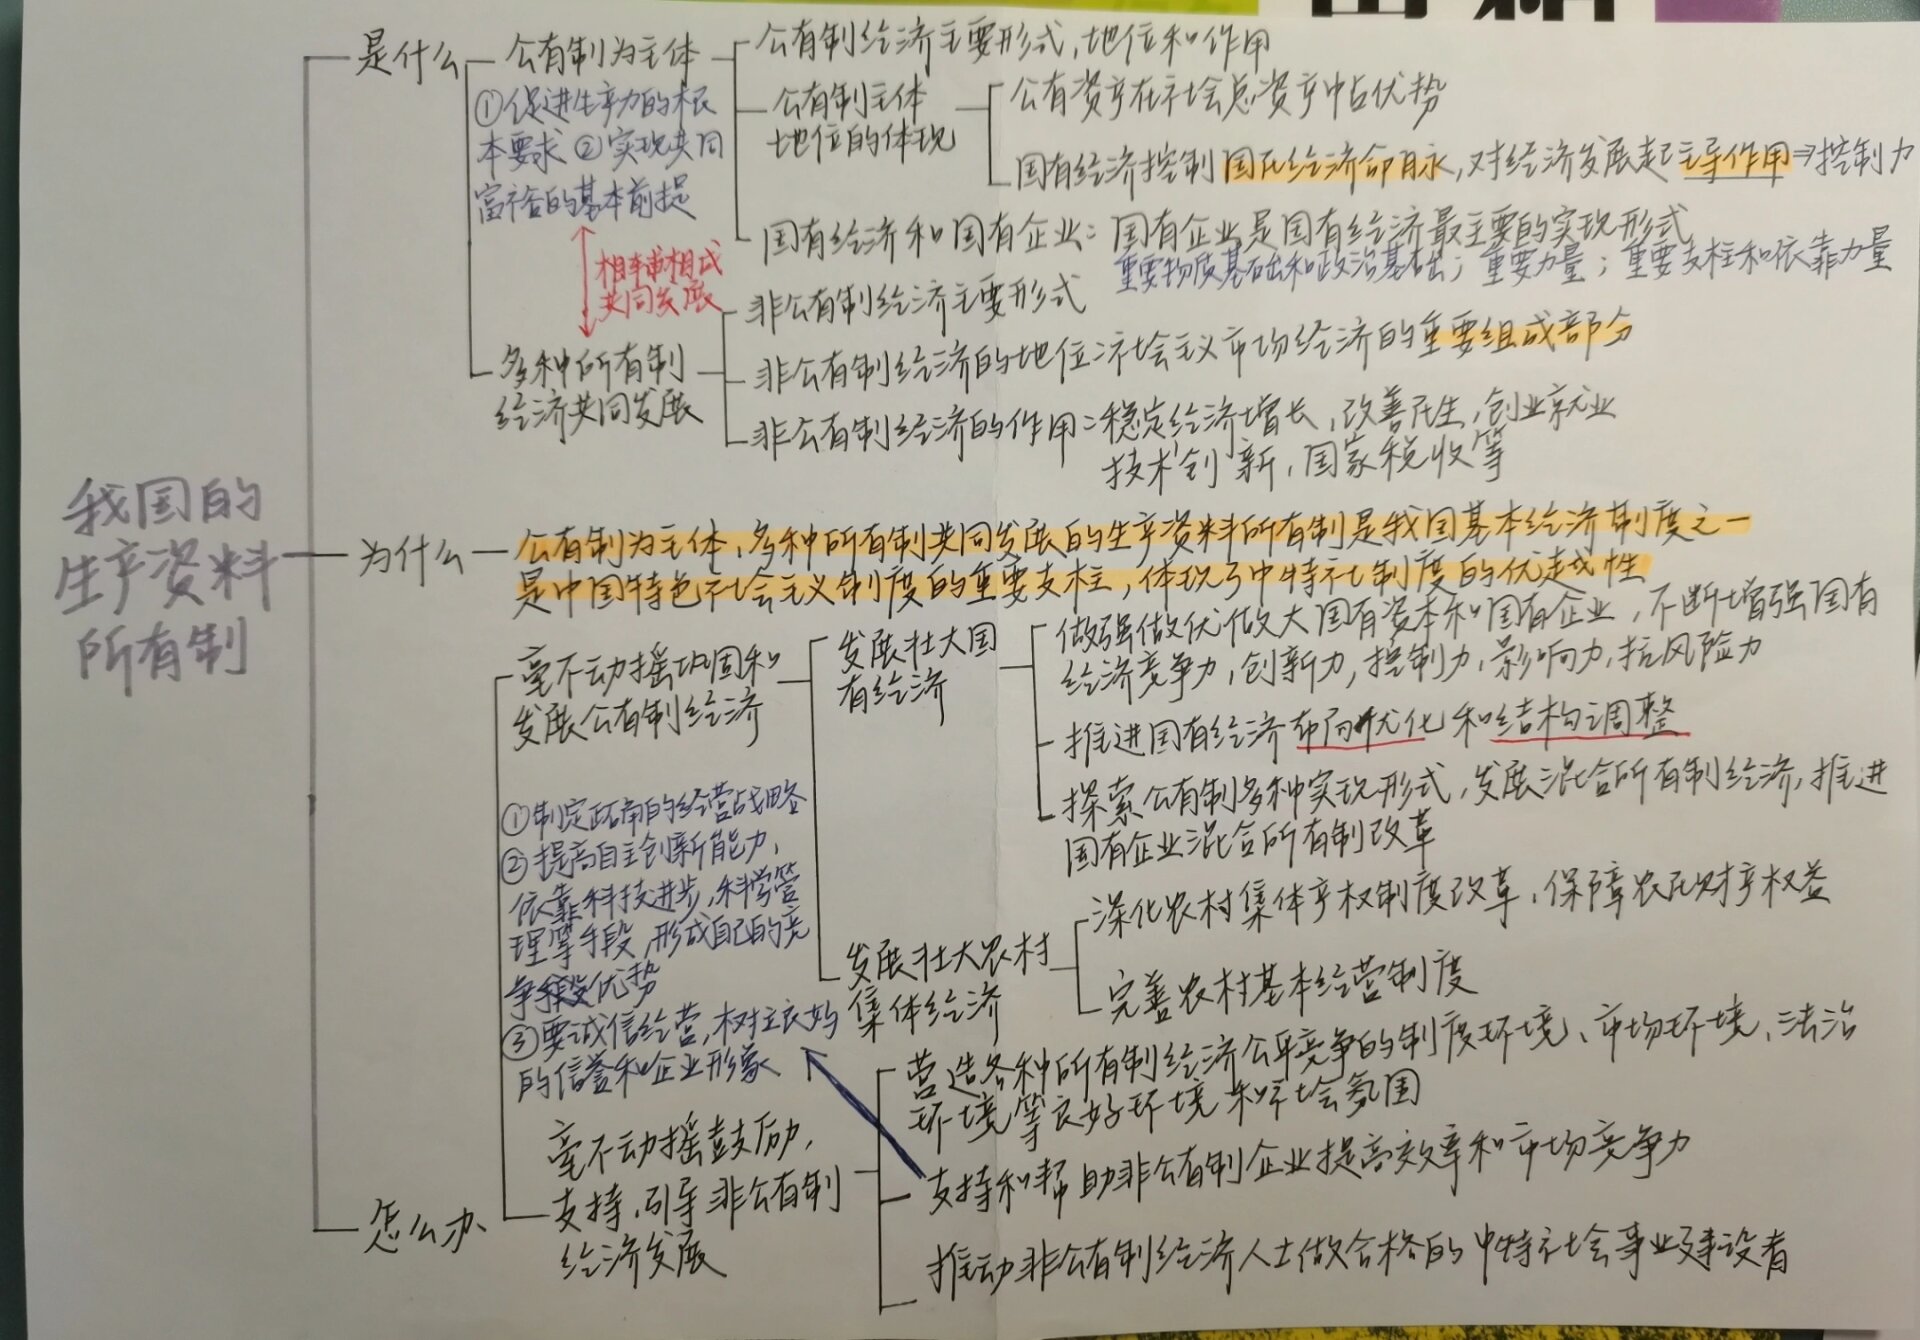 我国的
生产资料
所有制
是什么
公有制为主体
①促进生产力的根
本要求 ②实现共同
富裕的基本前提
相辅相成
共同发展
公有制经济主要形式,地位和作用
公有制主体
地位的体现
公有资产在社会总资产中占优势
国有经济控制国民经济命脉,对经济发展起主导作用⇒控制力
国有经济和国有企业:国有企业是国有经济最主要的实现形式
重要物质基础和政治基础;重要力量;重要支柱和依靠力量
多种所有制
经济共同发展
非公有制经济主要形式
非公有制经济的地位:社会主义市场经济的重要组成部分
非公有制经济的作用:稳定经济增长,改善民生,创业就业
技术创新,国家税收等
为什么
公有制为主体,多种所有制共同发展的生产资料所有制是我国基本经济制度之一
是中国特色社会主义制度的重要支柱,体现了中特社制度的优越性
怎么办
毫不动摇巩固和
发展公有制经济
发展壮大国
有经济
做强做优做大国有资本和国有企业,不断增强国有
经济竞争力,创新力,控制力,影响力,抗风险力
推进国有经济布局优化和结构调整
探索公有制多种实现形式,发展混合所有制经济,推进
国有企业混合所有制改革
发展壮大农村
集体经济
深化农村集体产权制度改革,保障农民财产权益
完善农村基本经营制度
①制定正确的经营战略
②提高自主创新能力,
依靠科技进步,科学管
理等手段,形成自己的竞
争优势
③要诚信经营,树立良好
的信誉和企业形象
毫不动摇鼓励,
支持,引导非公有制
经济发展
营造各种所有制经济公平竞争的制度环境、市场环境、法治
环境等良好环境和社会氛围
支持和帮助非公有制企业提高效率和市场竞争力
推动非公有制经济人士做合格的中特社会事业建设者